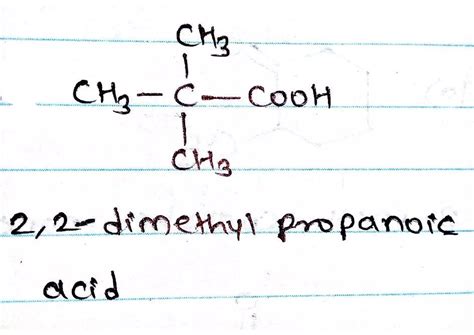 CH3
CH3 – C – COOH
CH3
2,2-dimethyl propanoic
acid